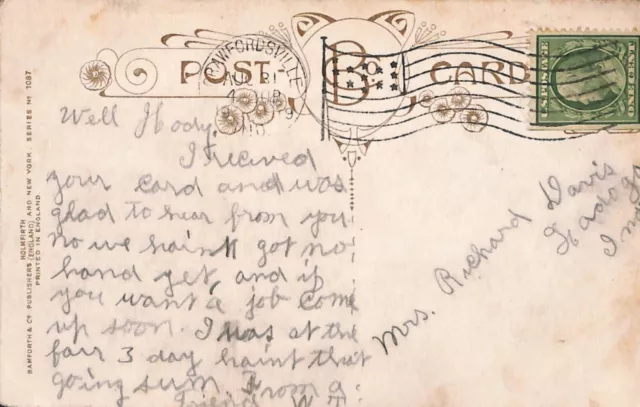 POST CARD
CRAWFORDSVILLE
BAMFORTH & Co PUBLISHERS (ENGLAND) AND NEW YORK. SERIES No 1087
HOLMFIRTH
PRINTED IN ENGLAND
Well Hody.
I recived
your card and was
glad to hear from you
no we haint got no
hand yet, and if
you want a job come
up soon. I was at the
fair 3 day haint that
going sum. From a
friend W.T.
Mrs. Richard Davis
Ladoga
Ind